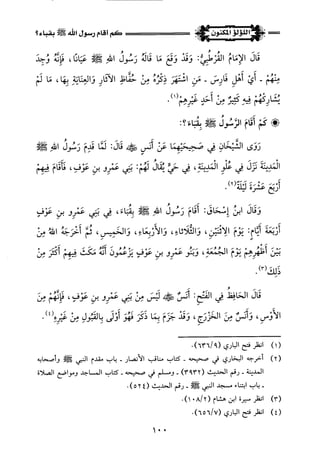 كم أقام رسول الله ﷺ بقباء؟
اللؤلؤ المكنون
قَالَ الإِمَامُ القُرْطُبِيُّ: وَقَدْ وَقَعَ مَا قَالَهُ رَسُولُ اللهِ ﷺ عَيَانًا، فَإِنَّهُ وُجِدَ
مِنْهُمْ - أَيْ أَهْلِ فَارِسَ - مَنِ اشْتَهَرَ ذِكْرُهُ مِنْ حُفَّاظِ الآثَارِ وَالعِنَايَةِ بِهَا، مَا لَمْ
يُشَارِكْهُمْ فِيهِ كَثِيرٌ مِنْ أَحَدِ غَيْرِهِمْ(١).
كَمْ أَقَامَ الرَّسُولُ ﷺ بِقُبَاء؟:
رَوَى الشَّيْخَانِ فِي صَحِيحَيْهِمَا عَنْ أَنَسٍ ﷺ قَالَ: لَمَّا قَدِمَ رَسُولُ اللهِ ﷺ
المَدِينَةَ نَزَلَ فِي عُلُوِّ المَدِينَةِ، فِي حَيٍّ يُقَالُ لَهُمْ: بَنِي عَمْرِو بنِ عَوْفٍ، فَأَقَامَ فِيهِمْ
أَرْبَعَ عَشْرَةَ لَيْلَةً(٢).
وَقَالَ ابنُ إِسْحَاقَ: أَقَامَ رَسُولُ اللهِ ﷺ بِقُبَاءَ، فِي بَنِي عَمْرِو بنِ عَوْفٍ
أَرْبَعَةَ أَيَّامٍ: يَوْمَ الاثْنَيْنِ، وَالثُّلَاثَاءِ، وَالأَرْبِعَاءِ، وَالخَمِيسِ، ثُمَّ أَخْرَجَهُ اللهُ مِنْ
بَيْنِ أَظْهُرِهِمْ يَوْمَ الجُمُعَةِ، وَبَنُو عَمْرِو بنِ عَوْفٍ يَزْعُمُونَ أَنَّهُ مَكَثَ فِيهِمْ أَكْثَرَ مِنْ
ذَلِكَ(٣).
قَالَ الحَافِظُ فِي الفَتْحِ: أَنَسٌ لَيْسَ مِنْ بَنِي عَمْرِو بنِ عَوْفٍ، فَإِنَّهُمْ مِنَ
الأَوْسِ، وَأَنَسٌ مِنَ الخَزْرَجِ، وَقَدْ جَزَمَ بِمَا ذَكَرَ فَهُوَ أَوْلَى بِالقَبُولِ مِنْ غَيْرِهِ(٤).
(١) انظر فتح الباري (٦٣٦/٩).
(٢) أخرجه البخاري في صحيحه - كتاب مناقب الأنصار - باب مقدم النبي ﷺ وأصحابه
المدينة - رقم الحديث (٣٩٣٢) - ومسلم في صحيحه - كتاب المساجد ومواضع الصلاة
- باب ابتناء مسجد النبي ﷺ - رقم الحديث (٥٢٤).
(٣) انظر سيرة ابن هشام (١٠٨/٢).
(٤) انظر فتح الباري (٦٥٦/٧).
١٠٠